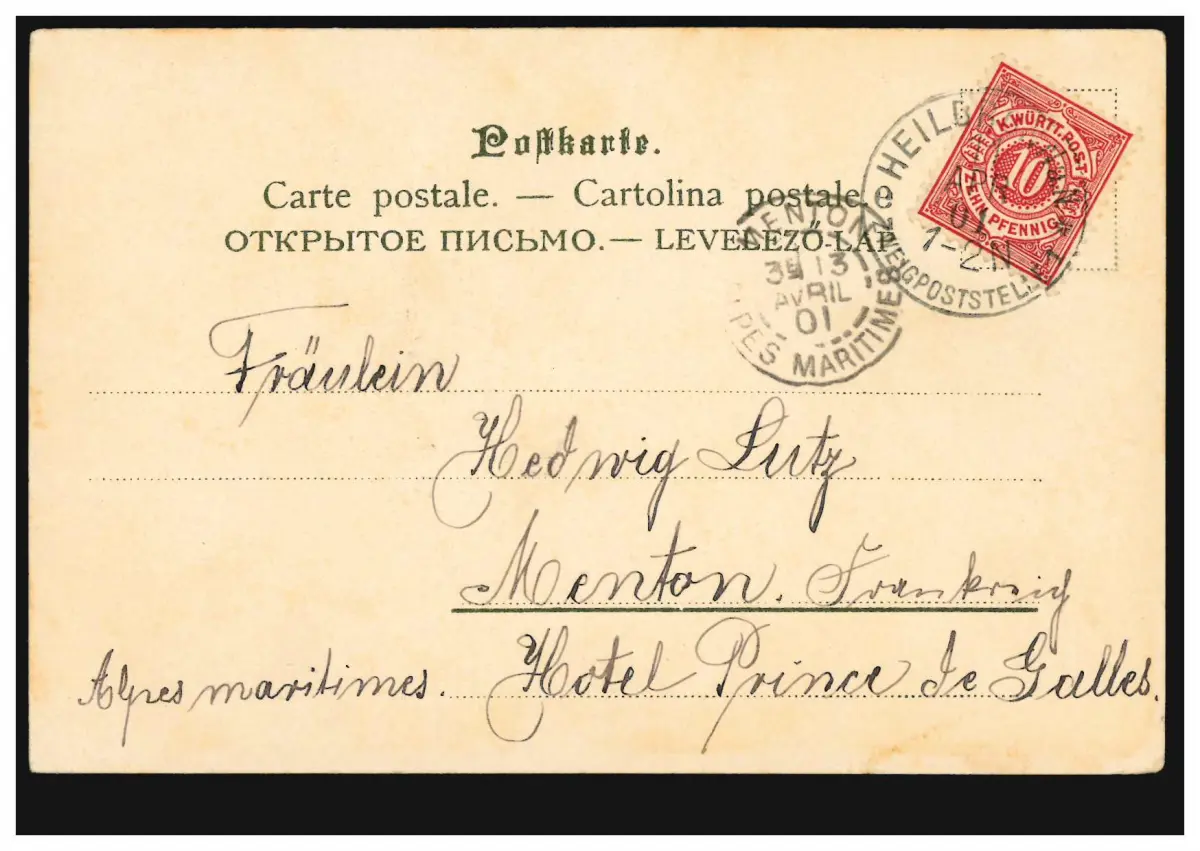 Postkarte.
Carte postale. — Cartolina postale.
ОТКРЫТОЕ ПИСЬМО. — LEVELEZŐ-LAP
K.WÜRTT.POST
10
ZEHN PFENNIG
ZWEIGPOSTSTELLE 1
01
1-2N
MENTON
3E 13
AVRIL
01
ALPES MARITIMES
Fräulein
Hedwig Lutz
Menton. Frankreich
Alpes maritimes. Hotel Prince de Galles.